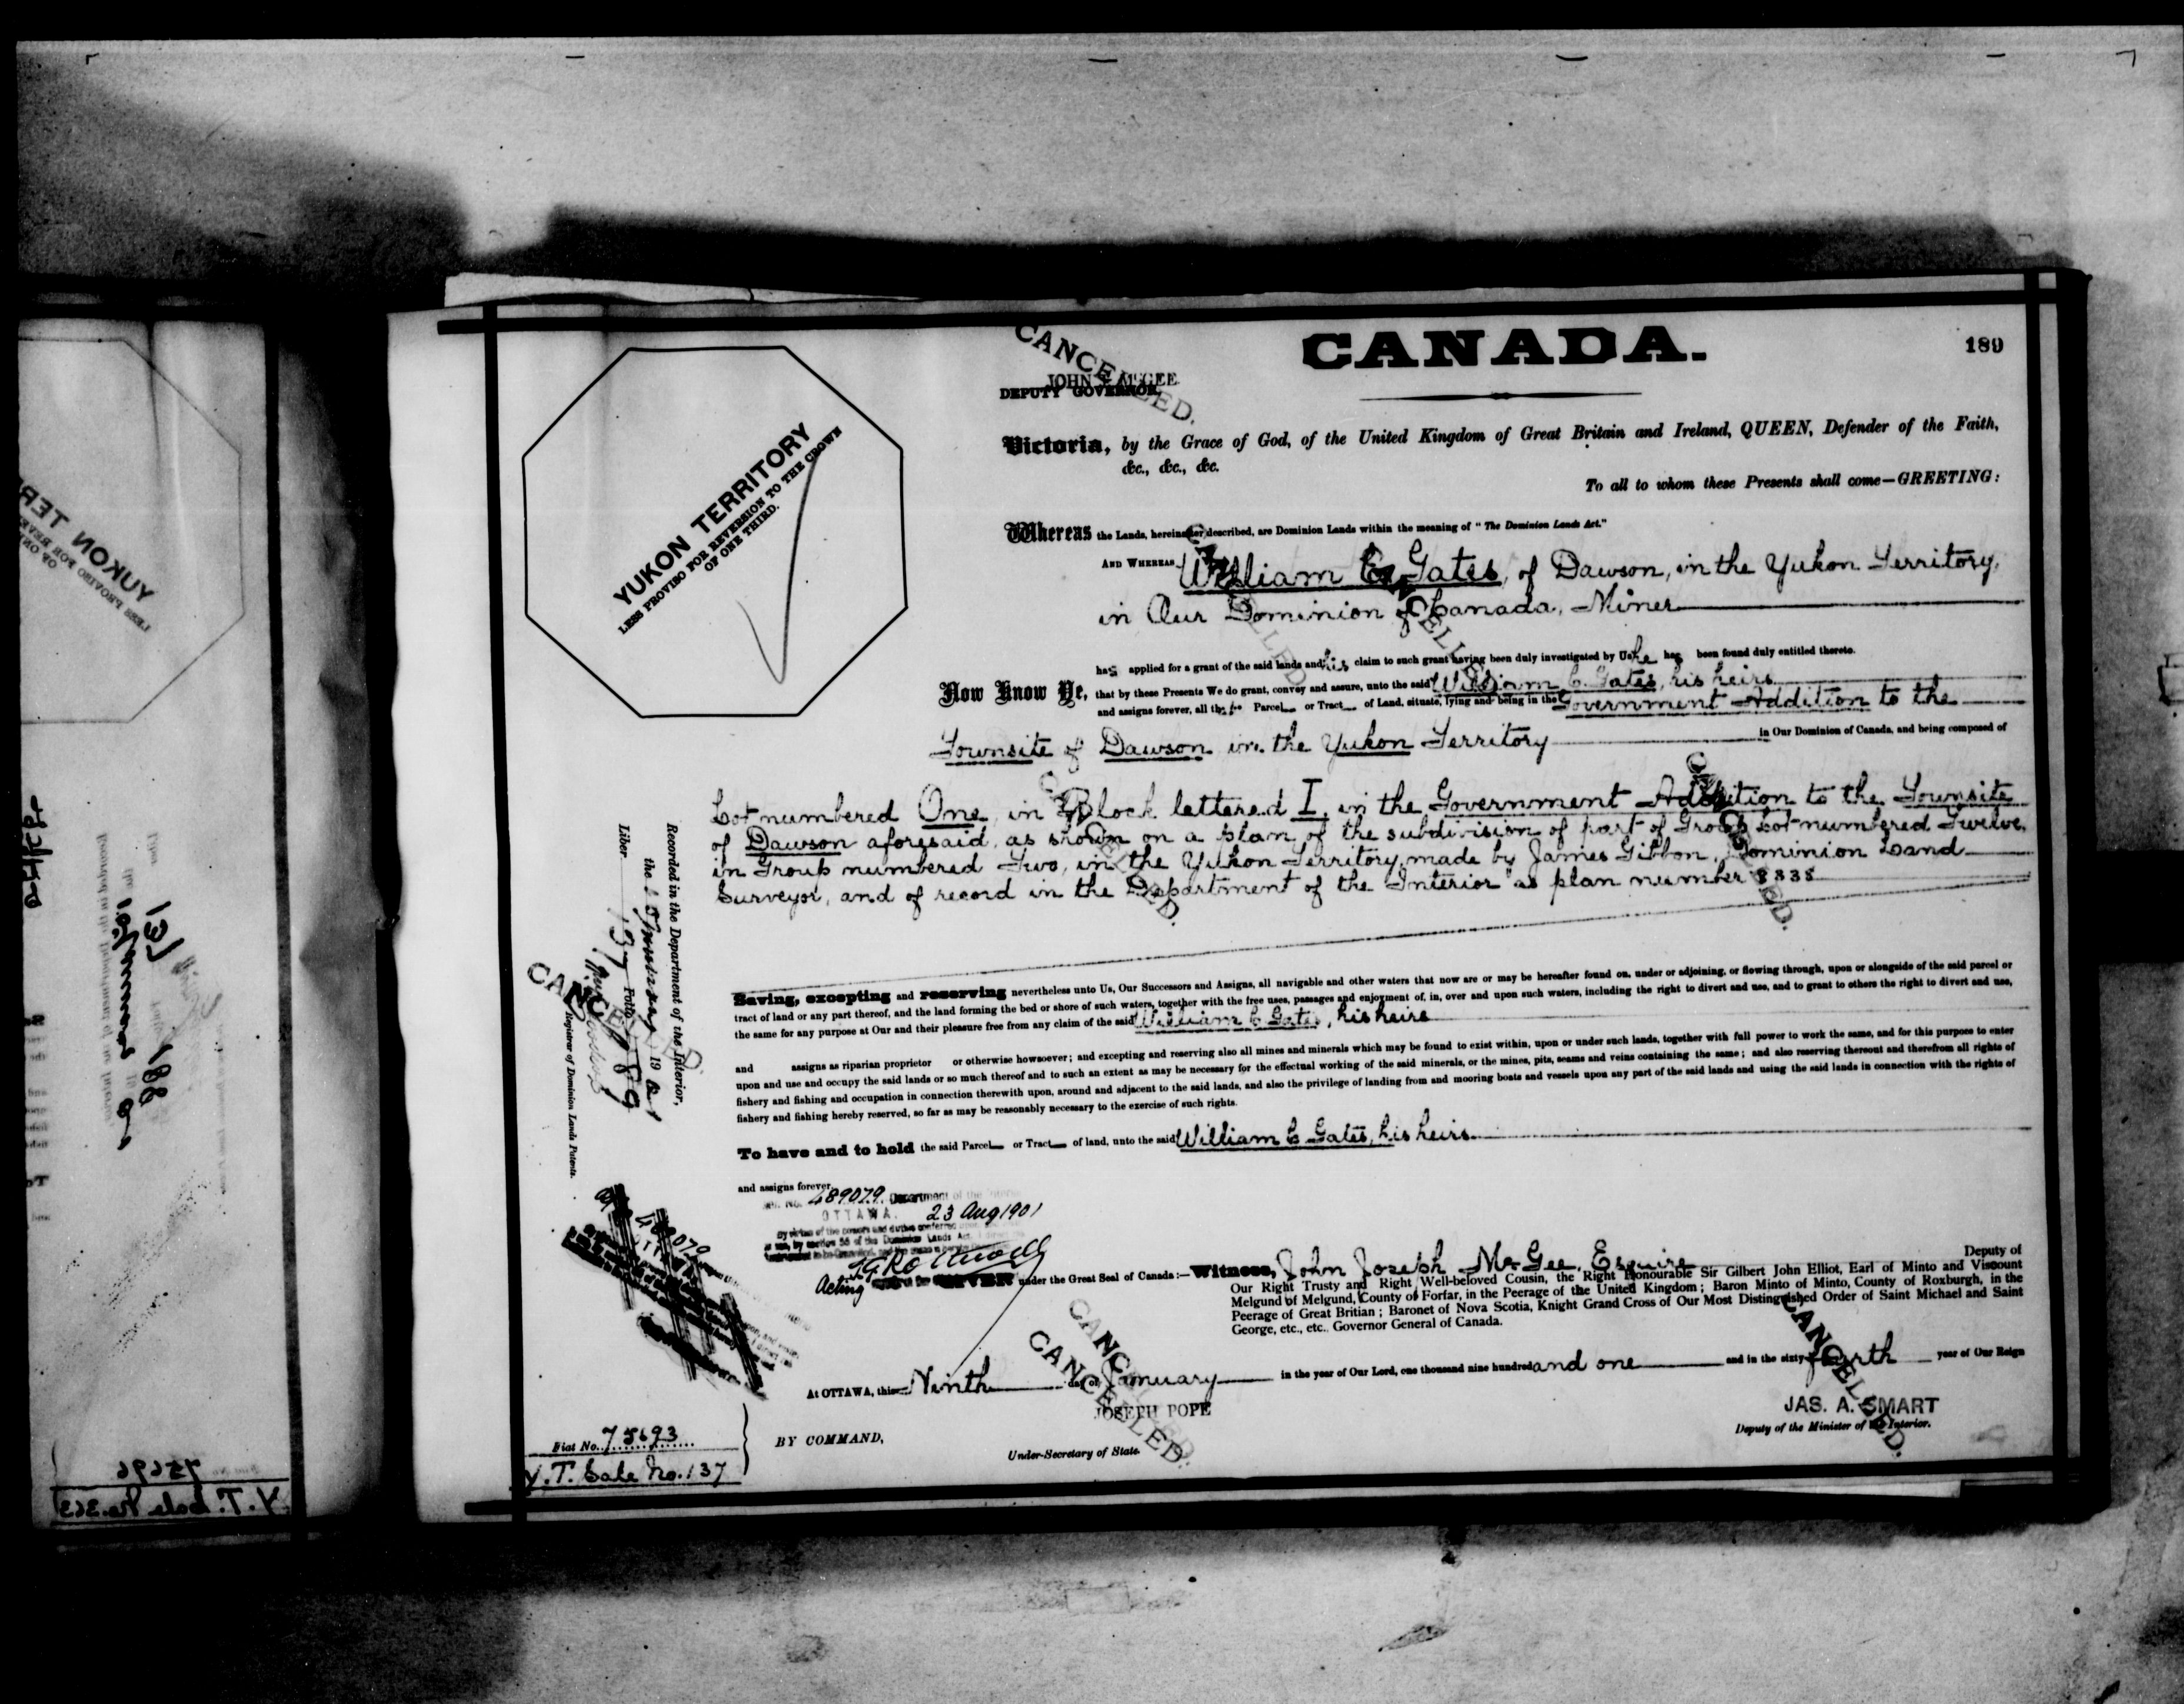 CANADA.
189
CANCELLED.
JOHN J. McGEE.
DEPUTY GOVERNOR.
YUKON TERRITORY
LESS PROVISO FOR REVERSION TO THE CROWN
OF ONE THIRD.
Victoria, by the Grace of God, of the United Kingdom of Great Britain and Ireland, QUEEN, Defender of the Faith,
&c., &c., &c.
To all to whom these Presents shall come—GREETING:
Whereas the Lands, hereinafter described, are Dominion Lands within the meaning of "The Dominion Lands Act."
AND WHEREAS William C. Gates, of Dawson, in the Yukon Territory,
in Our Dominion of Canada, Miner
CANCELLED
CANCELLED
has applied for a grant of the said lands and his claim to such grant having been duly investigated by Us he has been found duly entitled thereto.
Now Know Ye, that by these Presents We do grant, convey and assure, unto the said William C. Gates, his heirs
and assigns forever, all that Parcel or Tract of Land, situate, lying and being in the Government Addition to the
Townsite of Dawson in the Yukon Territory in Our Dominion of Canada, and being composed of
Lot numbered One, in Block lettered I, in the Government Addition to the Townsite
of Dawson aforesaid, as shown on a plan of the subdivision of part of Group Lot numbered Twelve,
in Group numbered Two, in the Yukon Territory, made by James Gibbon, Dominion Land
Surveyor, and of record in the Department of the Interior as plan number 8838
CANCELLED.
CANCELLED.
Saving, excepting and reserving nevertheless unto Us, Our Successors and Assigns, all navigable and other waters that now are or may be hereafter found on, under or adjoining, or flowing through, upon or alongside of the said parcel or
tract of land or any part thereof, and the land forming the bed or shore of such waters, together with the free uses, passages and enjoyment of, in, over and upon such waters, including the right to divert and use, and to grant to others the right to divert and use,
the same for any purpose at Our and their pleasure free from any claim of the said William C Gates, his heirs
and assigns as riparian proprietor or otherwise howsoever; and excepting and reserving also all mines and minerals which may be found to exist within, upon or under such lands, together with full power to work the same, and for this purpose to enter
upon and use and occupy the said lands or so much thereof and to such an extent as may be necessary for the effectual working of the said minerals, or the mines, pits, seams and veins containing the same; and also reserving thereout and therefrom all rights of
fishery and fishing and occupation in connection therewith upon, around and adjacent to the said lands, and also the privilege of landing from and mooring boats and vessels upon any part of the said lands and using the said lands in connection with the rights of
fishery and fishing hereby reserved, so far as may be reasonably necessary to the exercise of such rights.
To have and to hold the said Parcel or Tract of land, unto the said William C Gates, his heirs
and assigns forever.
Recorded in the Department of the Interior,
the January 1901
Liber 131 Folio 189
Registrar of Dominion Lands Patents.
CANCELLED
No. 489079. Department of the Interior
OTTAWA. 23 Aug 1901
by section 55 of the Dominion Lands Act
Acting
GIVEN under the Great Seal of Canada:—Witness, John Joseph McGee, Esquire Deputy of
Our Right Trusty and Right Well-beloved Cousin, the Right Honourable Sir Gilbert John Elliot, Earl of Minto and Viscount
Melgund of Melgund, County of Forfar, in the Peerage of the United Kingdom; Baron Minto of Minto, County of Roxburgh, in the
Peerage of Great Britian; Baronet of Nova Scotia, Knight Grand Cross of Our Most Distinguished Order of Saint Michael and Saint
George, etc., etc. Governor General of Canada.
At OTTAWA, this Ninth day of January in the year of Our Lord, one thousand nine hundred and one and in the sixty fourth year of Our Reign
CANCELLED.
CANCELLED.
JOSEPH POPE
JAS. A. SMART
Deputy of the Minister of the Interior.
BY COMMAND,
Under-Secretary of State.
Fiat No. 75693
Y.T. Sale No. 137
YUKON TER
LESS PROVISO FOR REVER
OF ON
131
188
75696
Y.T. Sale No. 363